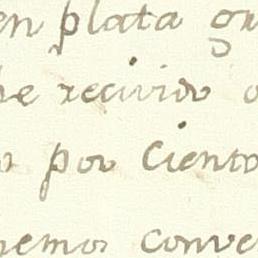 en plata gr
he recivido
por Ciento
hemos conve